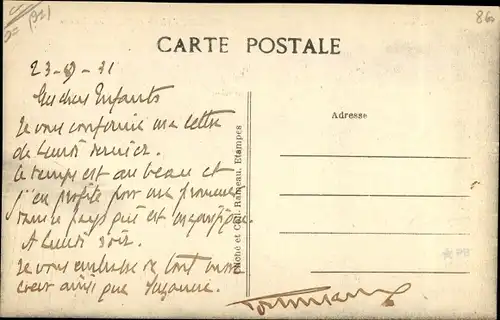 (92)
860
CARTE POSTALE
23-9-31
Mes chers Enfants
Je vous confirme ma lettre
de Lundi dernier.
Le temps est au beau et
j'en profite pour me promener
dans le pays qui est magnifique.
A Lundi soir.
Je vous embrasse de tout mon
coeur ainsi que Suzanne.
Adresse
Cliché et Coll. Rameau. Etampes